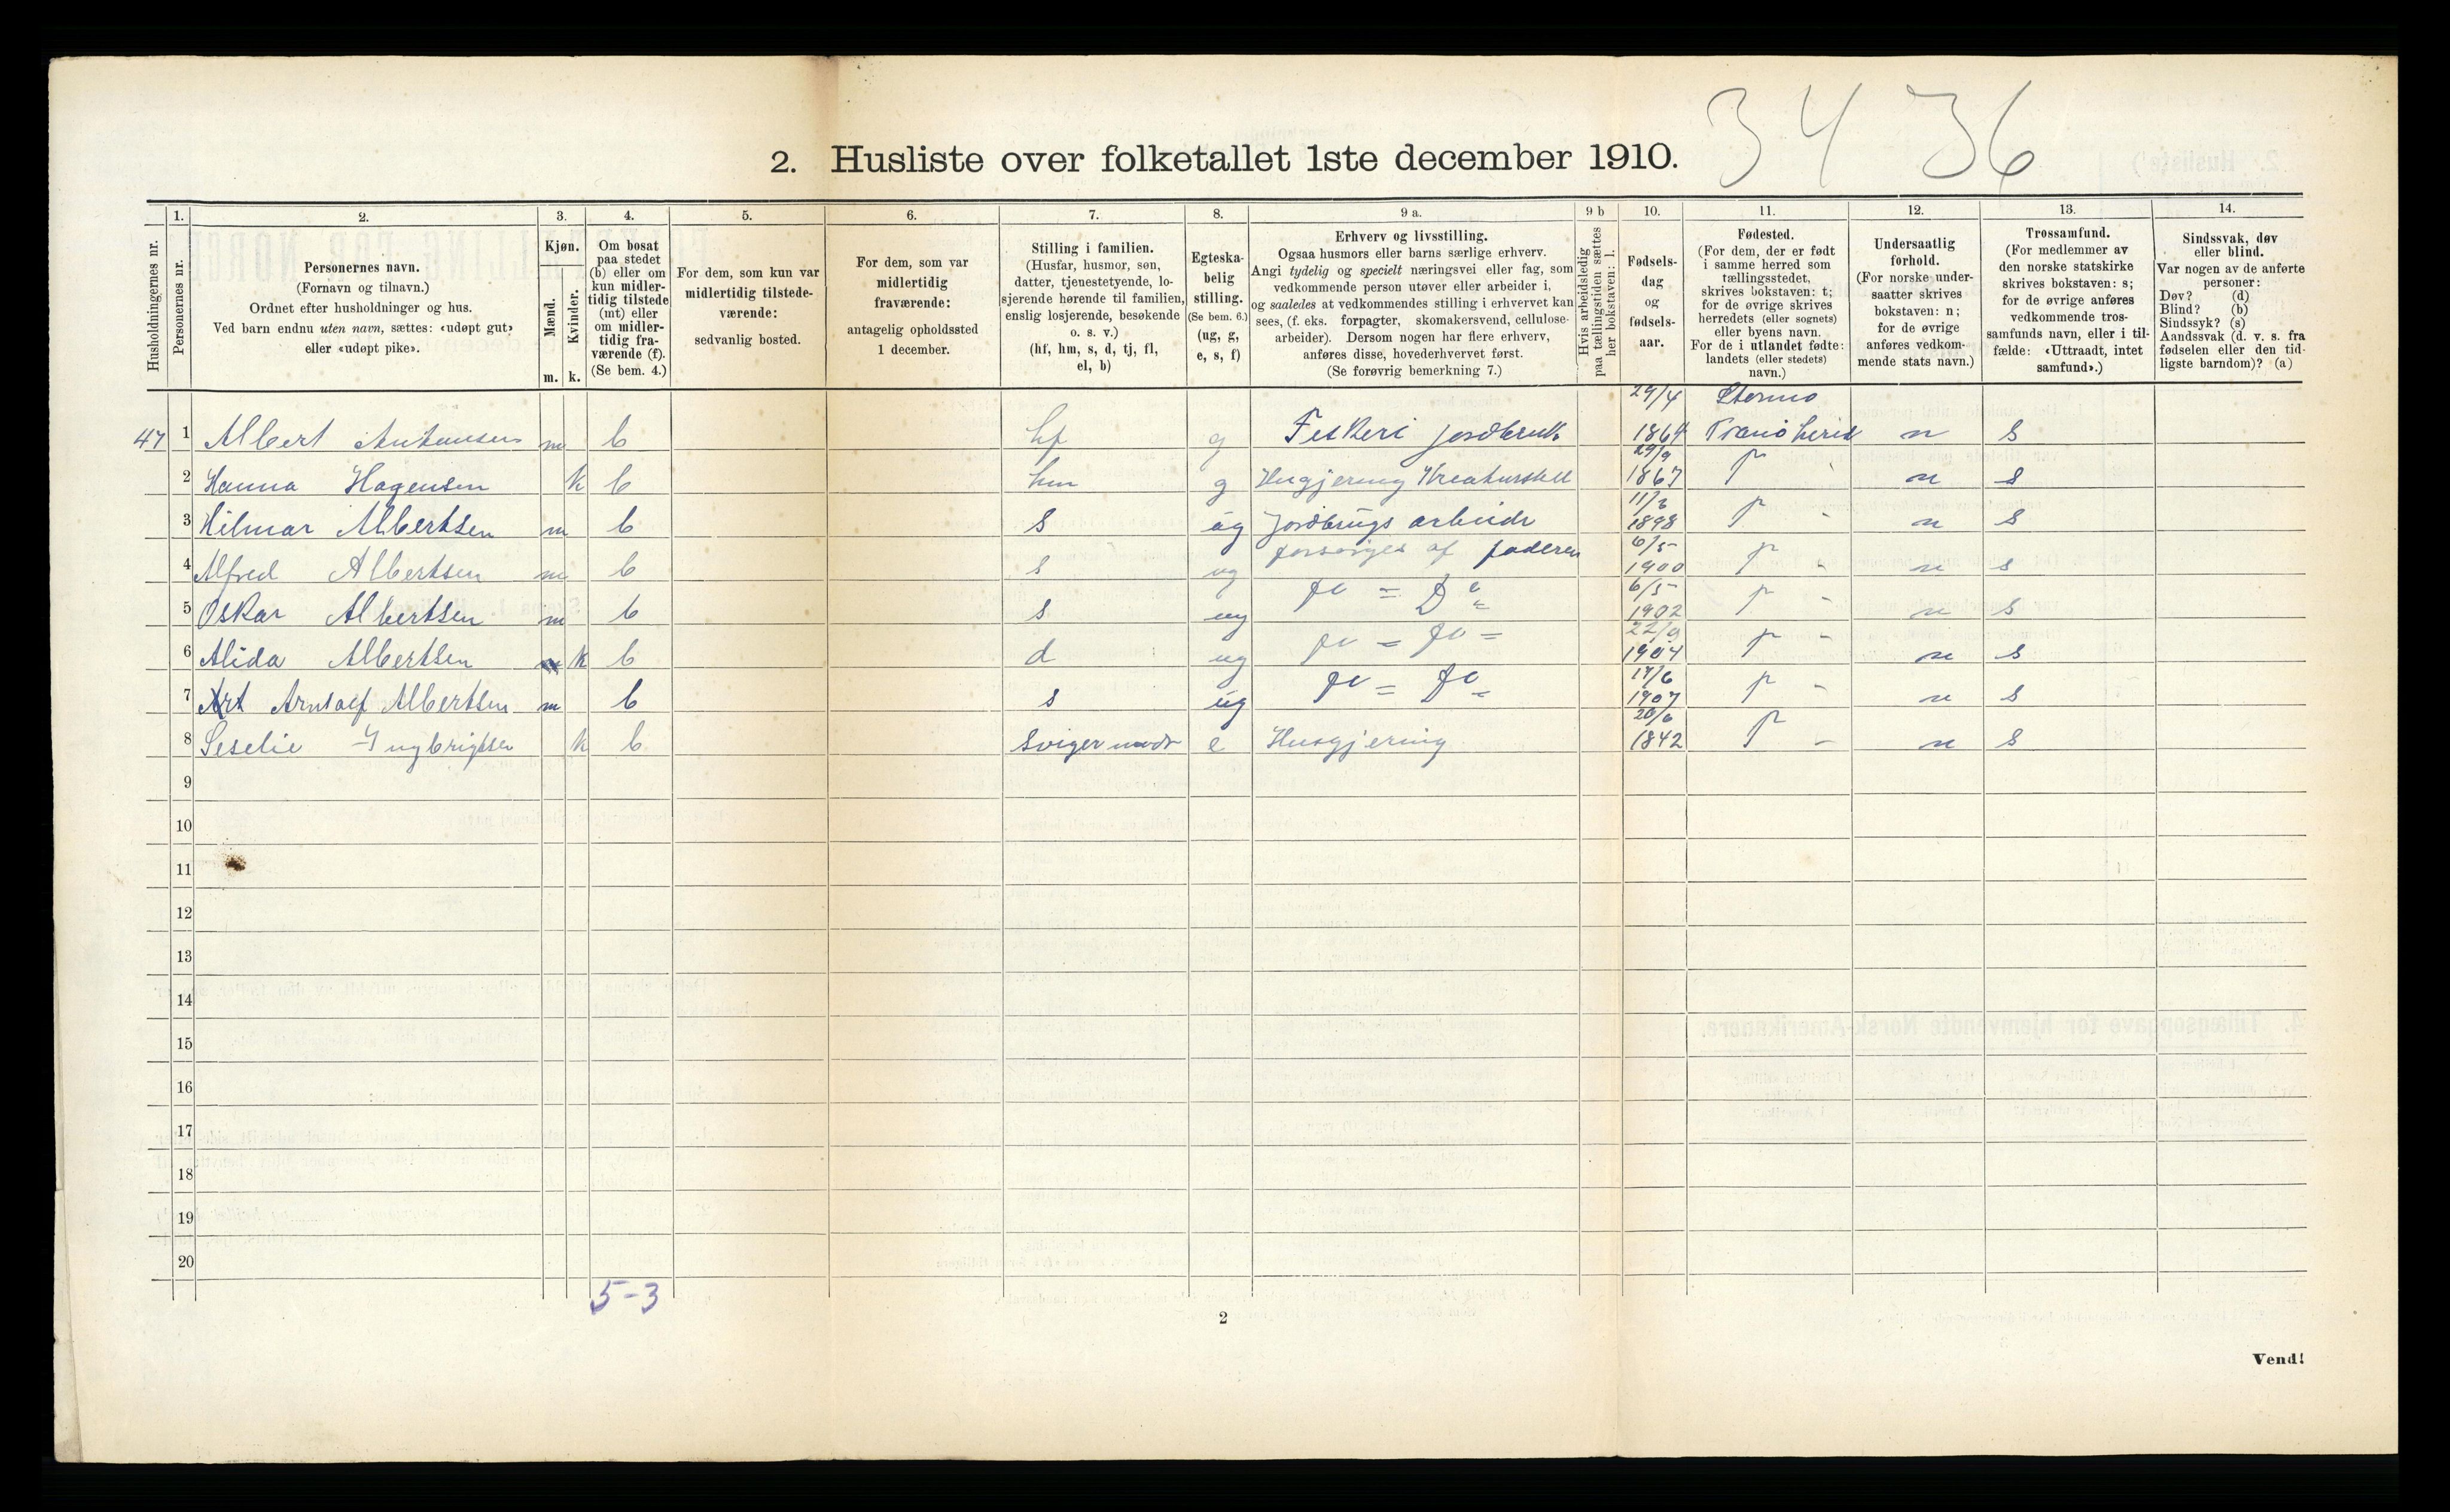 34 36
2. Husliste over folketallet 1ste december 1910.
Husholdningernes nr.
1. Personernes nr.
2. Personernes navn.
(Fornavn og tilnavn.)
Ordnet efter husholdninger og hus.
Ved barn endnu uten navn, sættes: «udøpt gut»
eller «udøpt pike».
3. Kjøn.
Mænd. m.
Kvinder. k.
4. Om bosat
paa stedet
(b) eller om
kun midler-
tidig tilstede
(mt) eller
om midler-
tidig fra-
værende (f).
(Se bem. 4.)
5. For dem, som kun var
midlertidig tilstede-
værende:
sedvanlig bosted.
6. For dem, som var
midlertidig
fraværende:
antagelig opholdssted
1 december.
7. Stilling i familien.
(Husfar, husmor, søn,
datter, tjenestetyende, lo-
sjerende hørende til familien,
enslig losjerende, besøkende
o. s. v.)
(hf, hm, s, d, tj, fl,
el, b)
8. Egteska-
belig
stilling.
(Se bem. 6.)
(ug, g,
e, s, f)
9 a. Erhverv og livsstilling.
Ogsaa husmors eller barns særlige erhverv.
Angi tydelig og specielt næringsvei eller fag, som
vedkommende person utøver eller arbeider i,
og saaledes at vedkommendes stilling i erhvervet kan
sees, (f. eks. forpagter, skomakersvend, cellulose-
arbeider). Dersom nogen har flere erhverv,
anføres disse, hovederhvervet først.
(Se forøvrig bemerkning 7.)
9 b Hvis arbeidsledig
paa tællingstiden sættes
her bokstaven: l.
10. Fødsels-
dag
og
fødsels-
aar.
11. Fødested.
(For dem, der er født
i samme herred som
tællingsstedet,
skrives bokstaven: t;
for de øvrige skrives
herredets (eller sognets)
eller byens navn.
For de i utlandet fødte:
landets (eller stedets)
navn.)
12. Undersaatlig
forhold.
(For norske under-
saatter skrives
bokstaven: n;
for de øvrige
anføres vedkom-
mende stats navn.)
13. Trossamfund.
(For medlemmer av
den norske statskirke
skrives bokstaven: s;
for de øvrige anføres
vedkommende tros-
samfunds navn, eller i til-
fælde: «Uttraadt, intet
samfund».)
14. Sindssvak, døv
eller blind.
Var nogen av de anførte
personer:
Døv? (d)
Blind? (b)
Sindssyk? (s)
Aandssvak (d. v. s. fra
fødselen eller den tid-
ligste barndom)? (a)
47 1 Albert m b hf g Feskeri jordbruk 29/4 1864 n s
2 Hanna Hagensen k b hm g 29/9 1867 n s
3 Hilmar Albertsen m b s ug Jordbrugs arbeide 1898 n s
4 Alfred Albertsen m b s ug forsørges af faderen 6/5 1900 n s
5 Oskar Albertsen m b s ug 6/5 1902 n s
6 Alida Albertsen k b d ug 1904 n s
7 Arntolf Albertsen m b s ug 17/6 1907 n s
8 Seselie Ingbrigtsen k b Svigermodr e Husgjering 20/6 1842 n s
9
10
11
12
13
14
15
16
17
18
19
20
5-3
2
Vend!